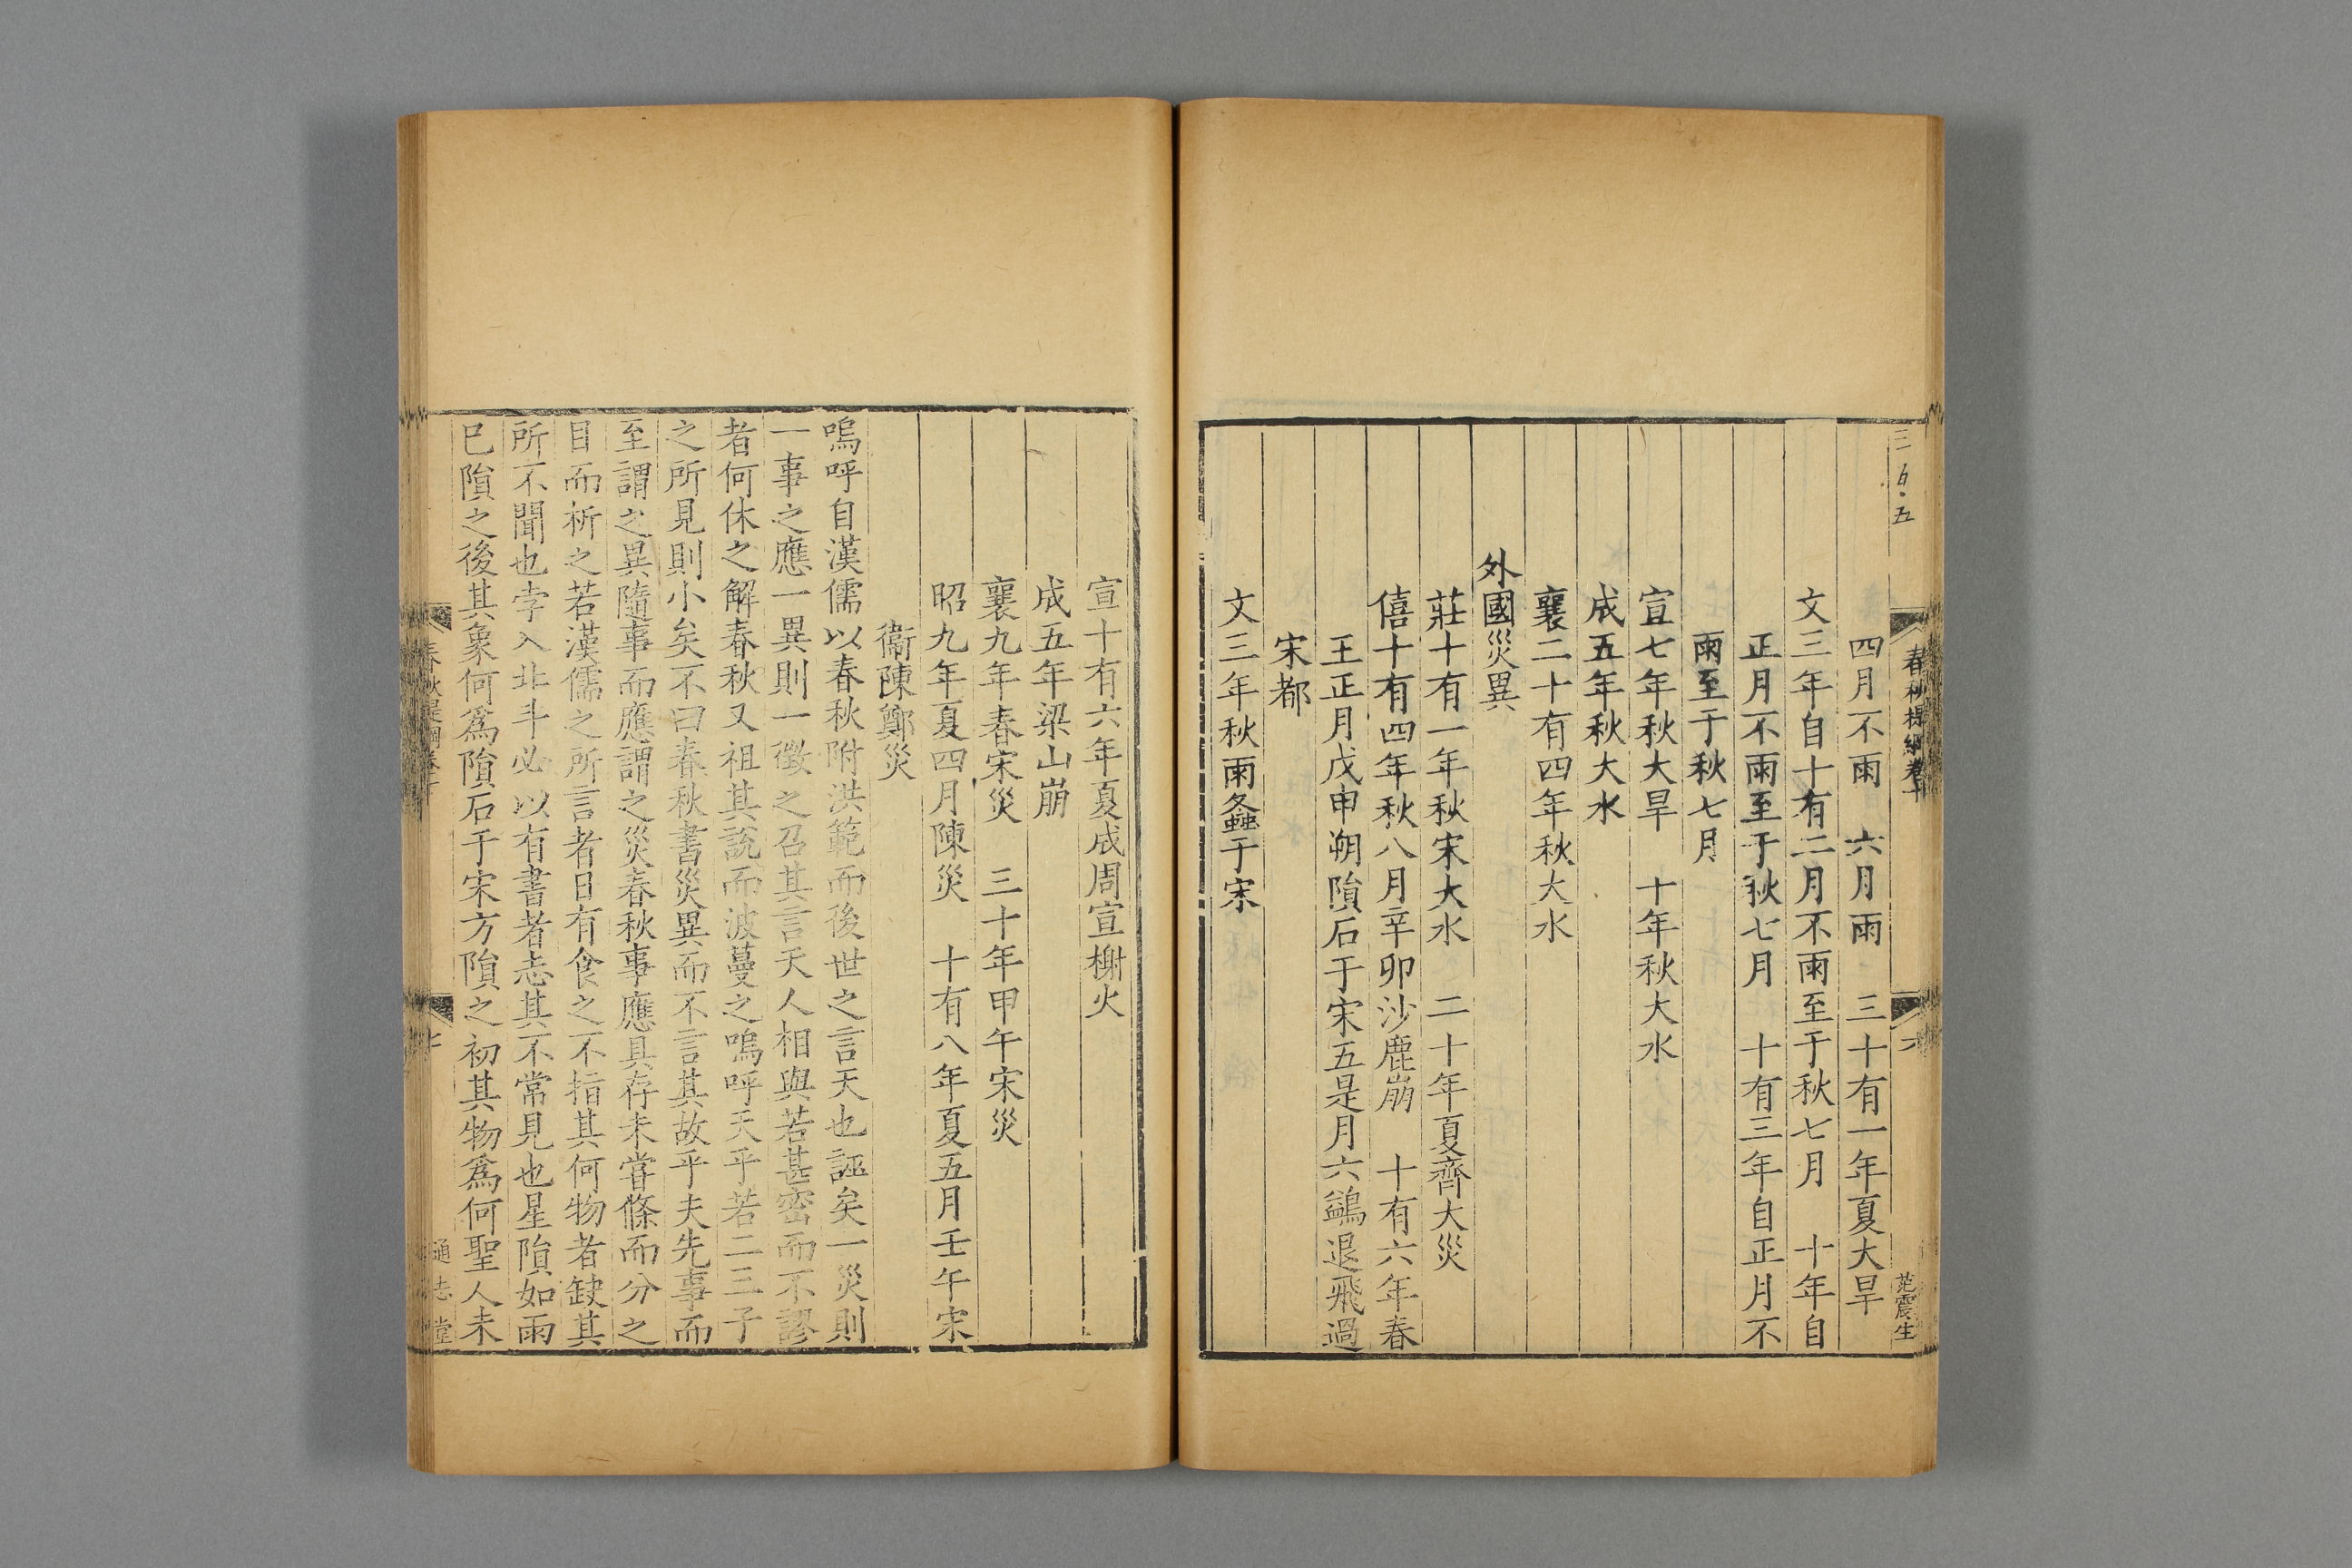 三百五
春秋提綱卷十
六
范震生
四月不雨　六月雨　三十有一年夏大旱
文三年自十有二月不雨至于秋七月　十年自
正月不雨至于秋七月　十有三年自正月不
雨至于秋七月
宣七年秋大旱　十年秋大水
成五年秋大水
襄二十有四年秋大水
外國災異
莊十有一年秋宋大水　二十年夏齊大災
僖十有四年秋八月辛卯沙鹿崩　十有六年春
王正月戊申朔隕石于宋五是月六鷁退飛過
宋都
文三年秋雨螽于宋
宣十有六年夏成周宣榭火
成五年梁山崩
襄九年春宋災　三十年甲午宋災
昭九年夏四月陳災　十有八年夏五月壬午宋
衞陳鄭災
嗚呼自漢儒以春秋附洪範而後世之言天也誣矣一災則
一事之應一異則一徵之召其言天人相與若甚密而不謬
者何休之解春秋又祖其說而波蔓之嗚呼天乎若二三子
之所見則小矣不曰春秋書災異而不言其故乎夫先事而
至謂之異隨事而應謂之災春秋事應具存未嘗條而分之
目而析之若漢儒之所言者日有食之不指其何物者缺其
所不聞也孛入北斗必以有書者志其不常見也星隕如雨
已隕之後其象何爲隕石于宋方隕之初其物爲何聖人未
春秋提綱卷十
七
通志堂